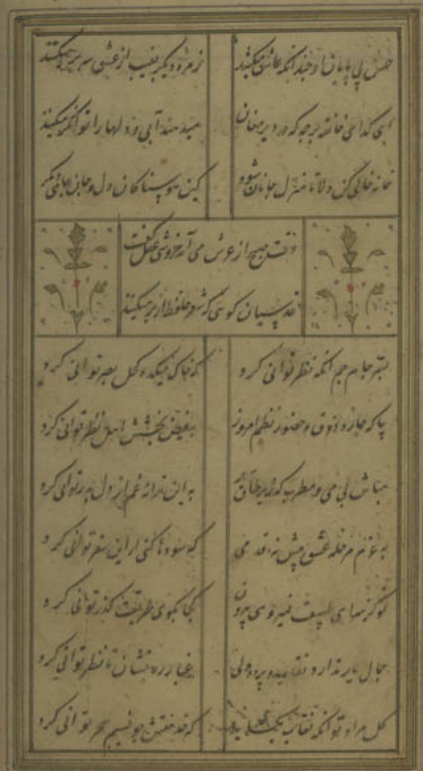 حسن بی پایان او چندانکه عاشق میکشد زمره دیگر بغیب از عشق سر بر میکنند
ای گدای خانقه برجه که در دیر مغان میدهند آبی و دلها را توانگر میکنند
خانه خالی کن دلا تا منزل جانان شود کین هوسناکان دل و جان جای
وقت صبح از عرش می آمد خروشی عقل گفت
قدسیان گویی که شعر حافظ از بر میکنند
بسر جام جم آنکه نظر توانی کرد که خاک میکده کحل بصر توانی کرد
بیا که چاره ذوق و حضور نظم امور بفیض بخشش اهل نظر توانی کرد
مباش بی می و مطرب که زیر طاق به این ترانه غم از دل بدر توانی کرد
به عزم مرحله عشق پیش نه قدمی که سودها کنی ار این سفر توانی کرد
تو کز سرای طبیعت نمیروی بیرون کجا بکوی طریقت گذر توانی کرد
جمال یار ندارد نقاب و پرده ولی غبار ره بنشان تا نظر توانی کرد
گل مراد تو آنکه نقاب بگشاید که خدمتش چو نسیم سحر توانی کرد